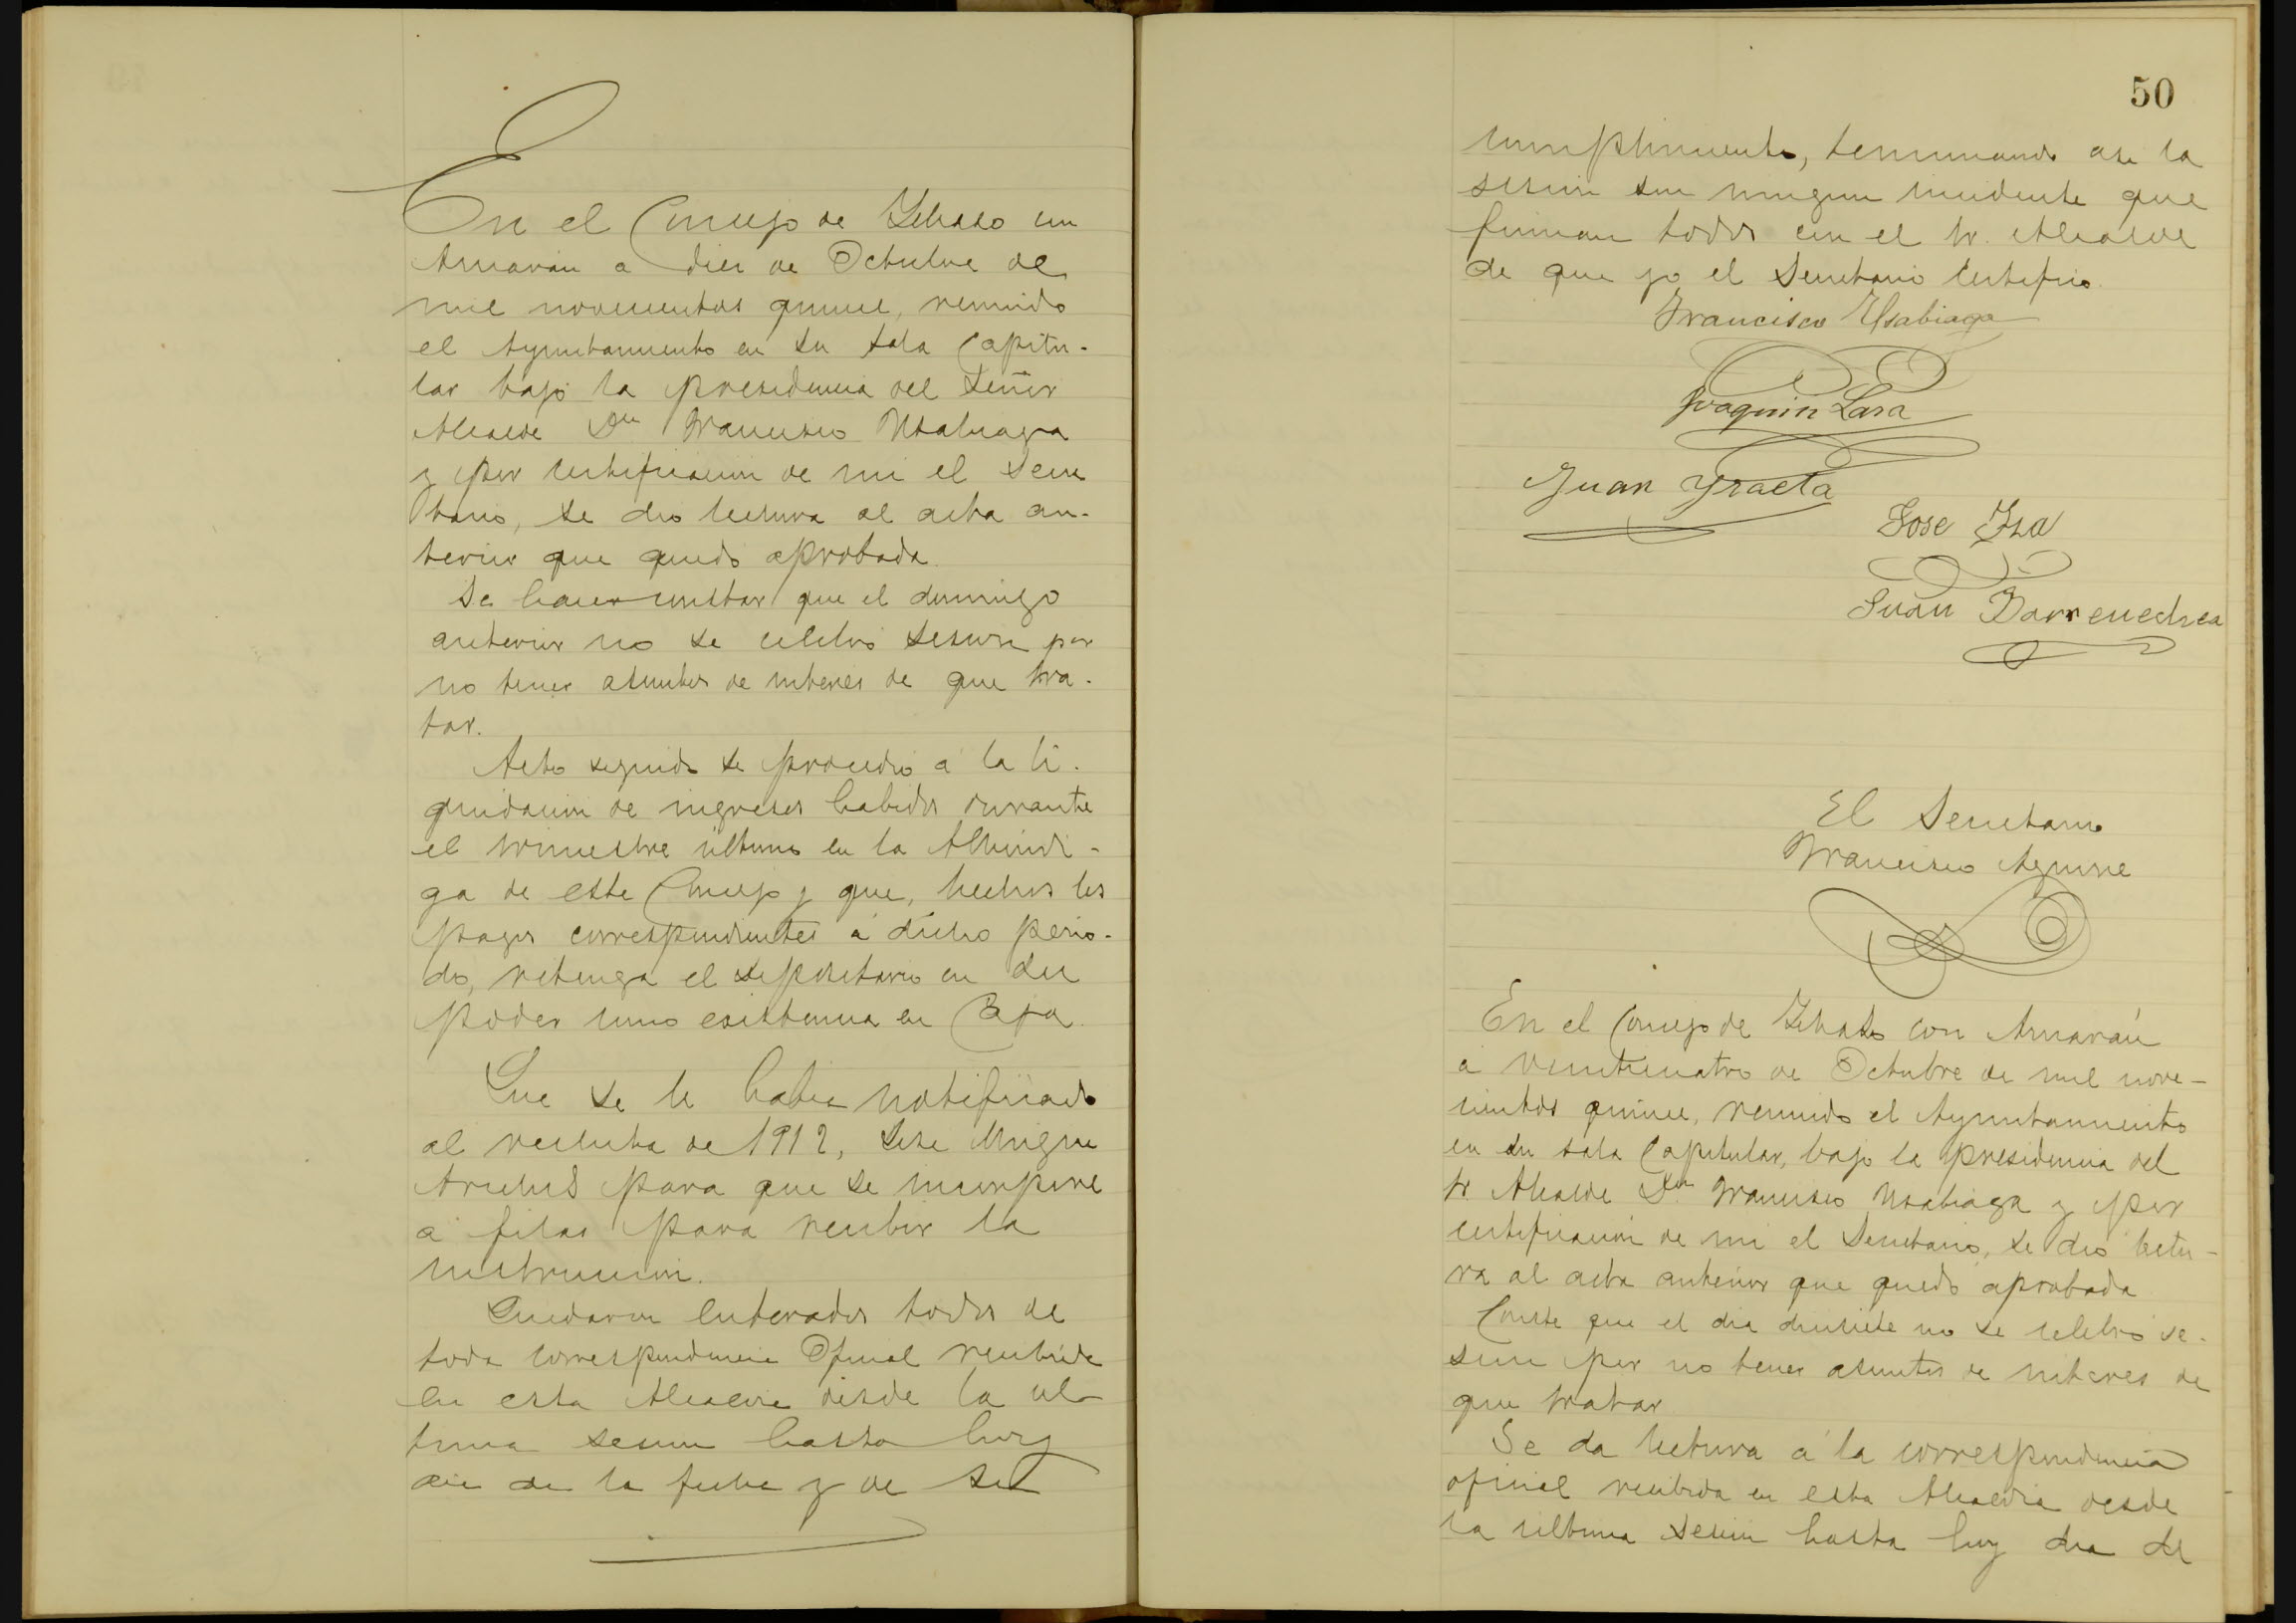 En el Concejo de Ichaso con
Arnaran a diez de Octubre de
mil novecientos quince, reunido
el Ayuntamiento en su sala Capitu-
lar bajo la presidencia del Señor
Alcalde Dn Francisco Usabiaga
y por certificacion de mi el Secre
tario, se dio lectura al acta an-
terior que quedó aprobada.
Se hacer constar que el domingo
anterior no se celebró sesion por
no tener asuntos de interes de que tra-
tar.
Acto seguido se procedió á la li-
quidacion de ingresos habidos durante
el trimestre último en la Alhóndi-
ga de este Concejo y que, hechos los
pagos correspondientes á dicho perio-
do, retenga el depositario en su
poder como existencia en Caja.
Que se le había notificado
al recluta de 1912, José Migue
para que se incorpore
a filas para recibir la
instruccion.
Quedaron enterados todos de
toda correspondencia Oficial recibida
en esta Alcaldia desde la ul
tima sesion hasta hoy
dia de la fecha y de su
50
cumplimiento, terminando asi la
sesion sin ningun incidente que
firman todos con el Sr. Alcalde
de que yo el Secretario certifico.
Francisco Usabiaga
Joaquin Lasa
Juan Yraeta
Jose Ysa
Juan Barrenechea
El Secretario
Francisco Aguirre
En el Concejo de Ichaso con Arnarán
á veinticuatro de Octubre de mil nove-
cientos quince, reunido el Ayuntamiento
en su sala Capitular, bajo la presidencia del
Sr Alcalde Dn Francisco Usabiaga y por
certificación de mi el Secretario, se dió lectu-
ra al acta anterior que quedó aprobada
Conste que el dia diecisiete no se celebró se-
sion por no tener asuntos de interes de
que tratar
Se da lectura á la correspondencia
oficial recibida en esta Alcaldia desde
la ultima sesion hasta hoy dia de